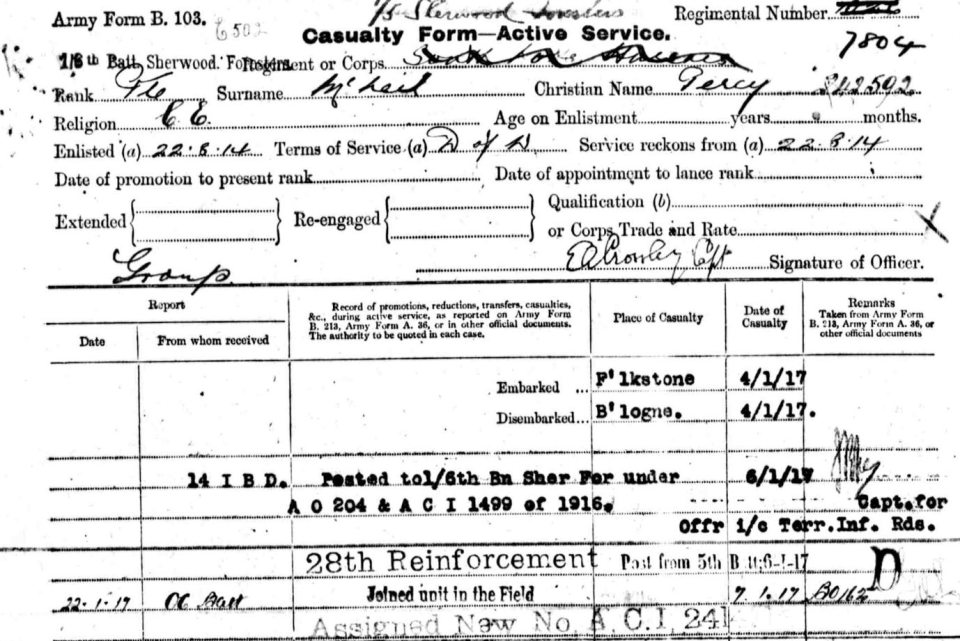 Army Form B. 103.
6502
1/5 Sherwood Foresters
Regimental Number
Casualty Form—Active Service.
7804
1/6th Batt. Sherwood. Foresters
Regiment or Corps
Rank Pte Surname McNeil Christian Name Percy 242592
Religion C.E. Age on Enlistment years months.
Enlisted (a) 22.8.14 Terms of Service (a) D of D Service reckons from (a) 22.8.14
Date of promotion to present rank Date of appointment to lance rank
Extended Re-engaged Qualification (b)
or Corps Trade and Rate
Crowley Cpt Signature of Officer.
Group.
Report
Date
From whom received
Record of promotions, reductions, transfers, casualties, &c., during active service, as reported on Army Form B. 213, Army Form A. 36, or in other official documents. The authority to be quoted in each case.
Place of Casualty
Date of Casualty
Remarks
Taken from Army Form B. 213, Army Form A. 36, or other official documents
Embarked ... F'lkstone 4/1/17
Disembarked... B'logne. 4/1/17.
14 I B D. Posted to1/6th Bn Sher For under 6/1/17
A O 204 & A C I 1499 of 1916. Capt.for
Offr i/c Terr.Inf. Rds.
28th Reinforcement Post from 5th Btt;6-1-17 D
22.1.17 OC Batt Joined unit in the Field 7.1.17 BO162
Assigned New No. A.C.I. 241